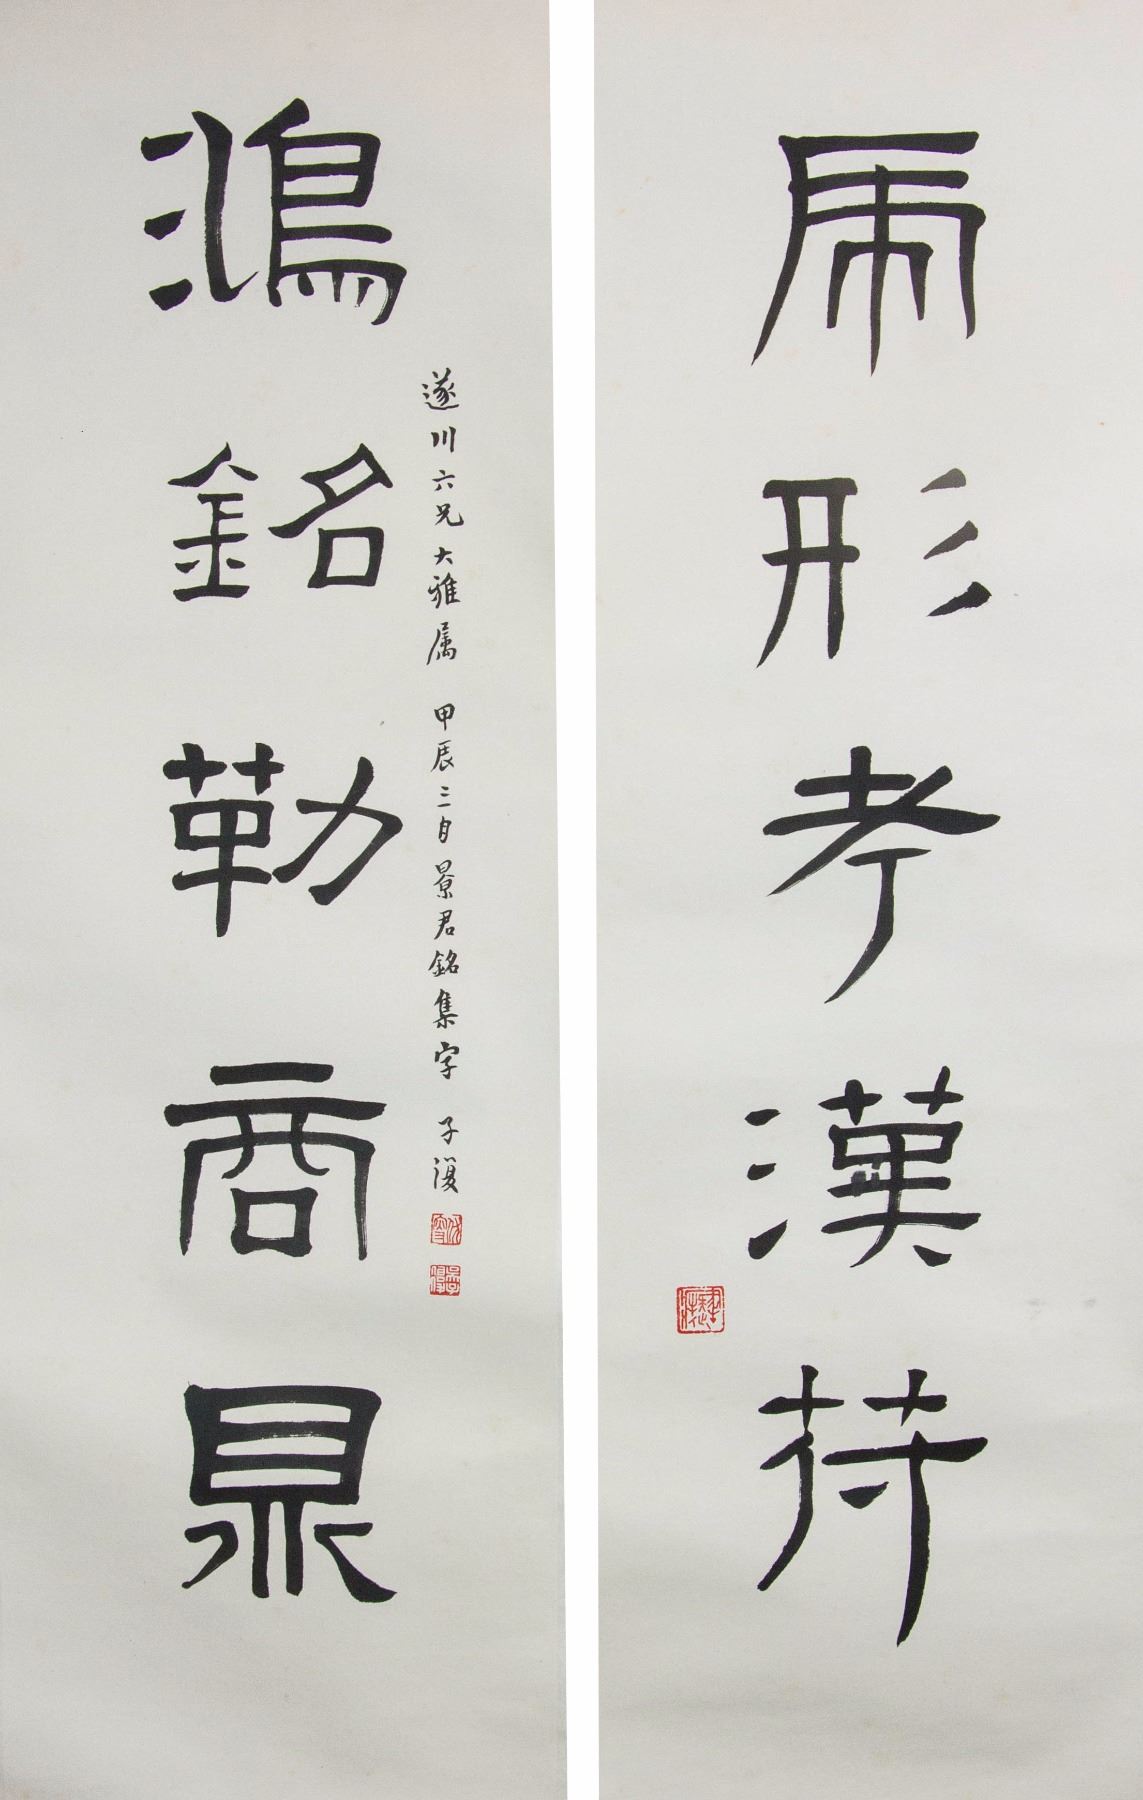 虎形考漢符
遂川六兄大雅属 甲辰三月景君銘集字 子復
鴻銘勒商鼎